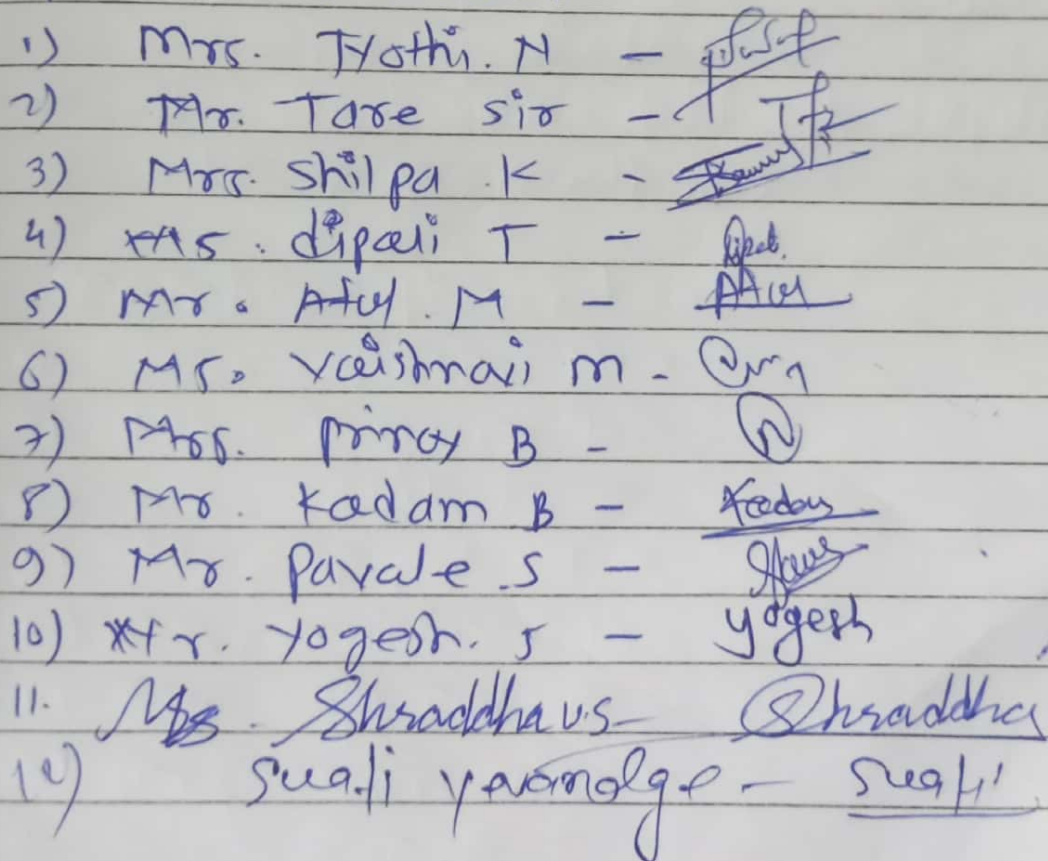 1) Mrs. Jyothi. N -
2) Mr. Tare sir -
3) Mrs. Shilpa .K -
4) Ms. dipali T - Dipali
5) Mr. Atul. M - Atul
6) Ms. vaishnavi m -
7) Mrs. B -
8) Mr. Kadam B - Kadam
9) Mr. Pavale .S -
10) Mr. Yogesh. S - Yogesh
11. Ms. Shraddha v.s - Shraddha
12) Swati -  Swati